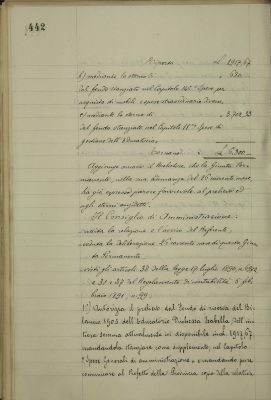 442
Riporto £ 1917,67
b) mediante lo storno di " 680
dal fondo stanziato nel Capitolo 16° Spese per
acquisto di mobili e spese straordinarie diverse
c) mediante lo storno di " 3.702,33
dal fondo stanziato nel Capitolo 18° Spese di
gestione dell'Educatorio
Tornano £ 6300
Aggiunge ancora il Relatore che la Giunta Per-
manente, nella sua adunanza del 26 corrente mese,
ha già espresso parere favorevole al prelevamento ed
agli storni suddetti.
Il Consiglio di Amministrazione
udita la relazione e l'avviso del Referente,
veduta la deliberazione 26 corrente mese di questa Giun-
ta Permanente,
visti gli articoli 38 della legge 17 luglio 1890, n. 6972
e 31 e 37 del Regolamento di contabilità 5 feb-
braio 1891, n. 99
1°) Autorizza il prelievo dal Fondo di riserva del Bi-
lancio 1905 dell'Educatorio Duchessa Isabella, dell'in-
tiera somma attualmente ivi disponibile in £ 1917,67,
mandandola stanziare, come supplemento, nel Capitolo
Spese Generali di amministrazione, e mandando pure
comunicare al Prefetto della Provincia copia della relativa